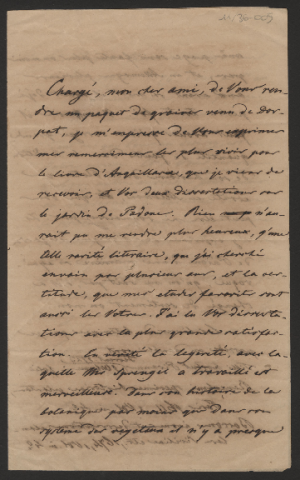 Chargé, mon cher ami, de Vous ren-
dre un paquet de graines venu de Dor-
pat, je m'empresse de Vous exprimer
mes remercimens les plus vivis pour
le livre d'Anguillara, que je viens de
recevoir, et Vos deux dissertations sur
le jardin de Padoue. Rien n'au-
rait pu me rendre plus heureux, qu'une
telle rarité literaire, que j'ai cherché
envain par plusieurs ans, et la cer-
titude, que mes etudes favorits sont
aussi les Votres. J'ai lu Vos disserta-
tions avec la plus grande satisfac-
tion. La legereté, avec la-
quelle Mr Sprengel a travaillé est
merveilleuse. Dans son histoire de la
botanique pas moins que dans son
systema des vegetaux il n'y a presque